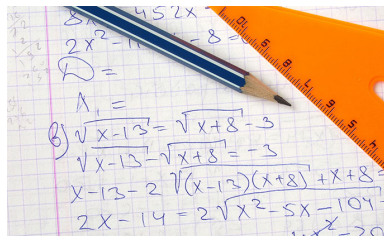 8x 452x
2x² - 8 =
D =
A₁ =
в) √x-13 = √x+8 - 3
√x-13 - √x+8 = -3
x-13-2 √(x-13)(x+8) + x+8 =
2x - 14 = 2√x²-5x-104 -